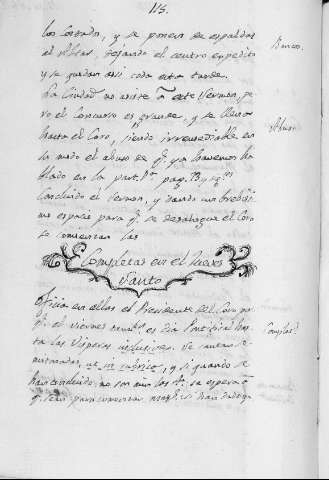 113.
los costados, y se ponen de espaldas
al Altar, dejando el centro expedito
y se quedan asi toda esta tarde.
Bancos.
La Ciudad no asiste à este Sermon, pe
ro el Concurso es grande, y se llena
hasta el Coro, siendo irremediable en
la mod el abuso de q.e ya havemos ha
blado en la part. 1.a pag. 73 y sig.tes
Concluido el Sermon, y dando un brebisi
mo espacio para q.e se desahogue el Coro
se comienzan las
Completas en el Jueves
Santo
Oficia en ellas el Presidente del Coro, por
q.e el viernes tamb.n es dia Pontifical has
ta las Visperas inclusive. Se cantan
entonadas, ut in rubrica, y si quando se
han concluido no son aun las
q.e sean para comenzar
Complet.s